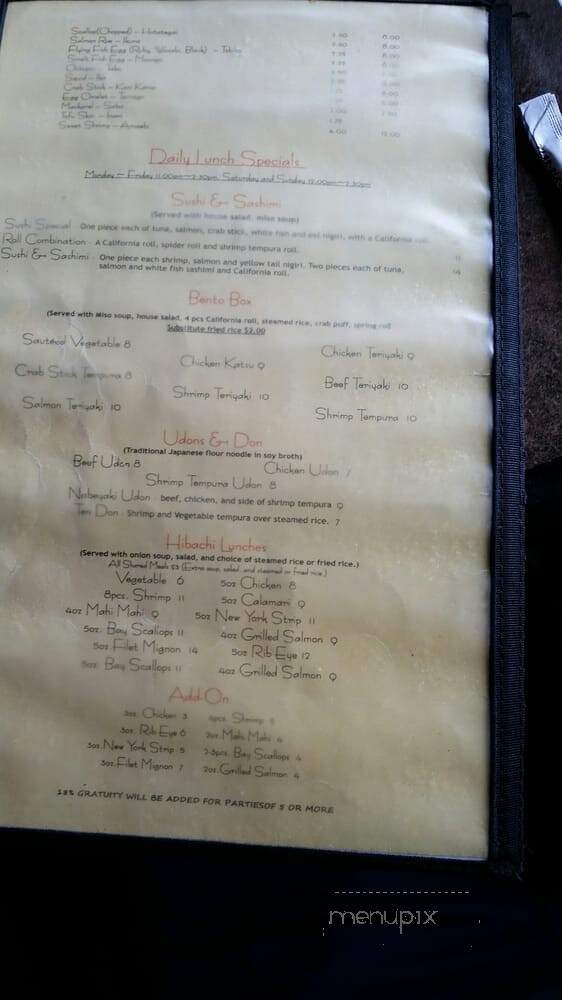 Scallop(Chopped) - Hotategai 8.00
Salmon Roe - Ikura 8.00
Flying Fish Egg - Tobiko 8.00
Smelt Fish Egg - Masago
Octopus - Tako
Squid - Ika
Crab Stick - Kani Kama
Egg Omelet - Tamago
Mackerel - Saba
Tofu Skin - Inari
Sweet Shrimp - Amaebi 6.00 12.00
Daily Lunch Specials
Monday - Friday 11.00am-2.30pm, Saturday and Sunday 12.00am-2.30pm
Sushi & Sashimi
(Served with house salad, miso soup)
Sushi Special - One piece each of tuna, salmon, crab stick, white fish and eel nigiri, with a California roll.
Roll Combination - A California roll, spider roll and shrimp tempura roll. 11
Sushi & Sashimi - One piece each shrimp, salmon and yellow tail nigiri. Two pieces each of tuna, 14
salmon and white fish sashimi and California roll.
Bento Box
(Served with Miso soup, house salad, 4 pcs California roll, steamed rice, crab puff, spring roll
Substitute fried rice $2.00
Sauteed Vegetable 8
Chicken Katsu 9
Chicken Teriyaki 9
Crab Stick Tempura 8
Shrimp Teriyaki 10
Beef Teriyaki 10
Salmon Teriyaki 10
Shrimp Tempura 10
Udons & Don
(Traditional Japanese flour noodle in soy broth)
Beef Udon 8 Chicken Udon 7
Shrimp Tempura Udon 8
Nabeyaki Udon - beef, chicken, and side of shrimp tempura 9
Ten Don - Shrimp and Vegetable tempura over steamed rice. 7
Hibachi Lunches
(Served with onion soup, salad, and choice of steamed rice or fried rice.)
All Shared Meals $3 (Extra soup, salad, and steamed or fried rice.)
Vegetable 6 5oz Chicken 8
8pcs. Shrimp 11 5oz Calamari 9
4oz Mahi Mahi 9 5oz New York Strip 11
5oz. Bay Scallops 11 4oz Grilled Salmon 9
5oz. Filet Mignon 14 5oz Rib Eye 12
5oz. Bay Scallops 11 4oz Grilled Salmon 9
Add-On
3oz. Chicken 3 Shrimp
3oz. Rib Eye 6 2oz. Mahi Mahi 4
3oz. New York Strip 5 Bay Scallops 4
3oz. Filet Mignon 7 2oz. Grilled Salmon 4
18% GRATUITY WILL BE ADDED FOR PARTIESOF 5 OR MORE
menupix